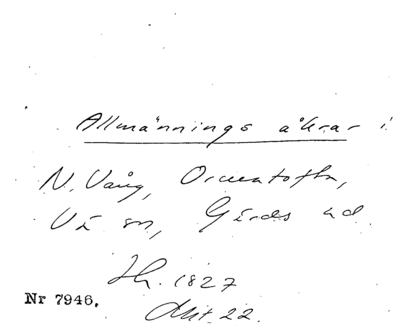 Allmännings åkrar i
N. Vång, Ormatofta,
Vä sn, Gärds hd
Sk. 1827
Nr 7946.
Akt 22.